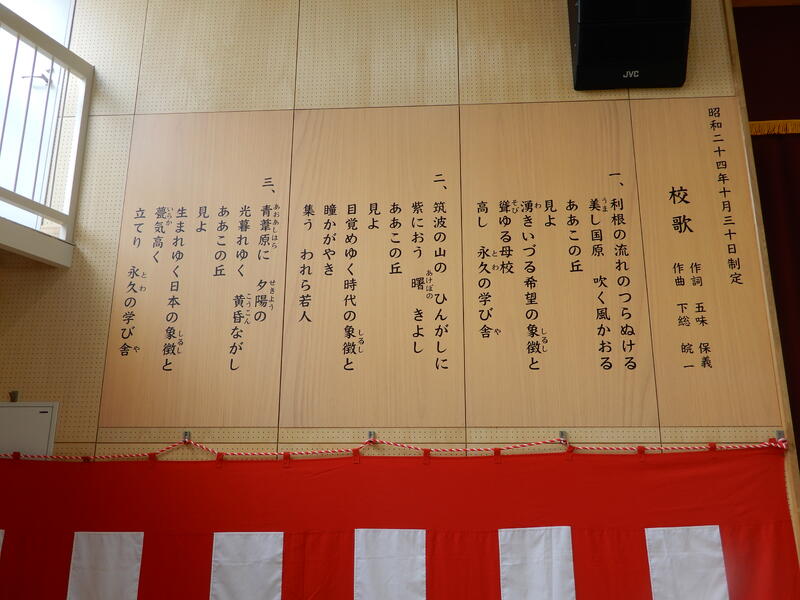 昭和二十四年十月三十日制定
校歌
作詞 五味 保義
作曲 下総 皖一
一、利根の流れのつらぬける
美し国原 吹く風かおる
うま
ああこの丘
見よ
湧きいづる希望の象徴と
わ しるし
聳ゆる母校
そび
高し 永久の学び舎
とわ や
二、筑波の山の ひんがしに
紫におう 曙 きよし
あけぼの
ああこの丘
見よ
目覚めゆく時代の象徴と
しるし
瞳かがやき
集う われら若人
三、青葦原に 夕陽の
あおあしはら せきよう
光暮れゆく 黄昏ながし
こうこん
ああこの丘
見よ
生まれゆく日本の象徴と
しるし
甍気高く
いらか
立てり 永久の学び舎
とわ や
JVC